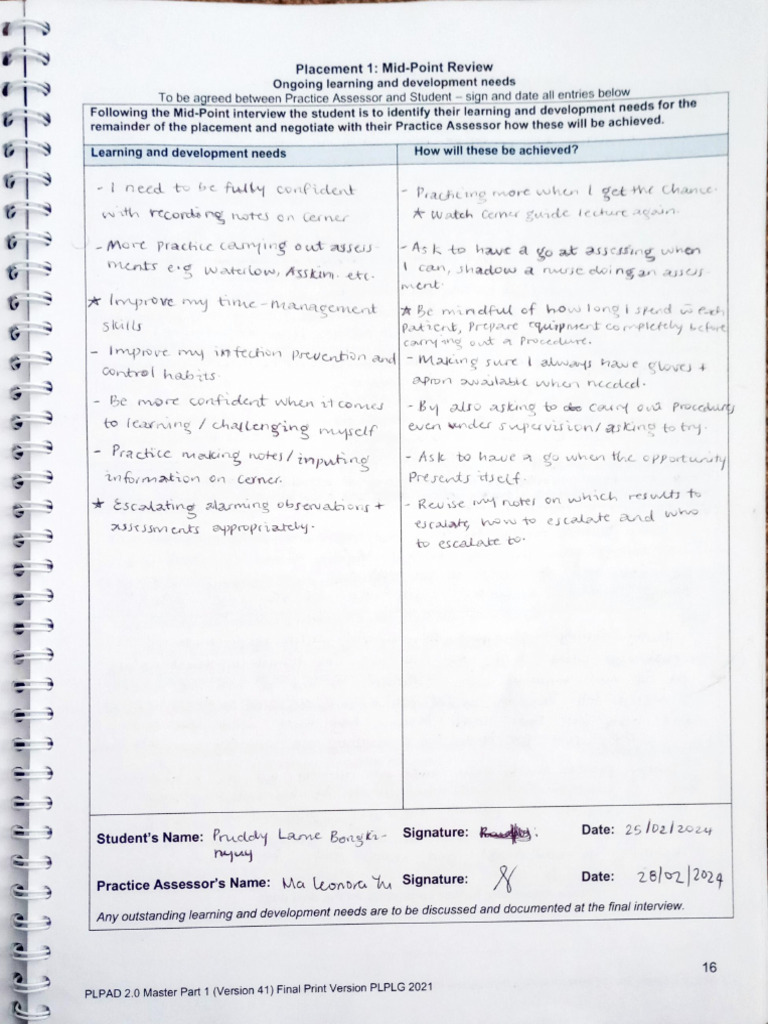 Placement 1: Mid-Point Review
Ongoing learning and development needs
To be agreed between Practice Assessor and Student – sign and date all entries below
Following the Mid-Point interview the student is to identify their learning and development needs for the
remainder of the placement and negotiate with their Practice Assessor how these will be achieved.
Learning and development needs
- I need to be fully confident
with recording notes on cerner
- More practice carrying out assess-
ments e.g Waterlow, Asskin. etc.
★ Improve my time-management
skills
- Improve my infection prevention and
control habits.
- Be more confident when it comes
to learning / challenging myself
- Practice making notes/inputing
information on cerner.
★ Escalating alarming observations +
assessments appropriately.
How will these be achieved?
- Practicing more when I get the chance.
★ Watch Cerner guide lecture again.
- Ask to have a go at assessing when
I can, shadow a nurse doing an assess-
ment.
★ Be mindful of how long I spend w each
patient, Prepare equipment completely before
carrying out a procedure.
- Making sure I always have gloves +
apron available when needed.
- By also asking to carry out procedures
even under supervision/asking to try.
- Ask to have a go when the opportunity
Presents itself.
- Revise my notes on which results to
escalate, how to escalate and who
to escalate to.
Student's Name: Pruddy Lame Bongki-
nyuy
Signature:
Date: 25/02/2024
Practice Assessor's Name: Ma Leonora Yu
Signature:
Date: 28/02/2024
Any outstanding learning and development needs are to be discussed and documented at the final interview.
16
PLPAD 2.0 Master Part 1 (Version 41) Final Print Version PLPLG 2021